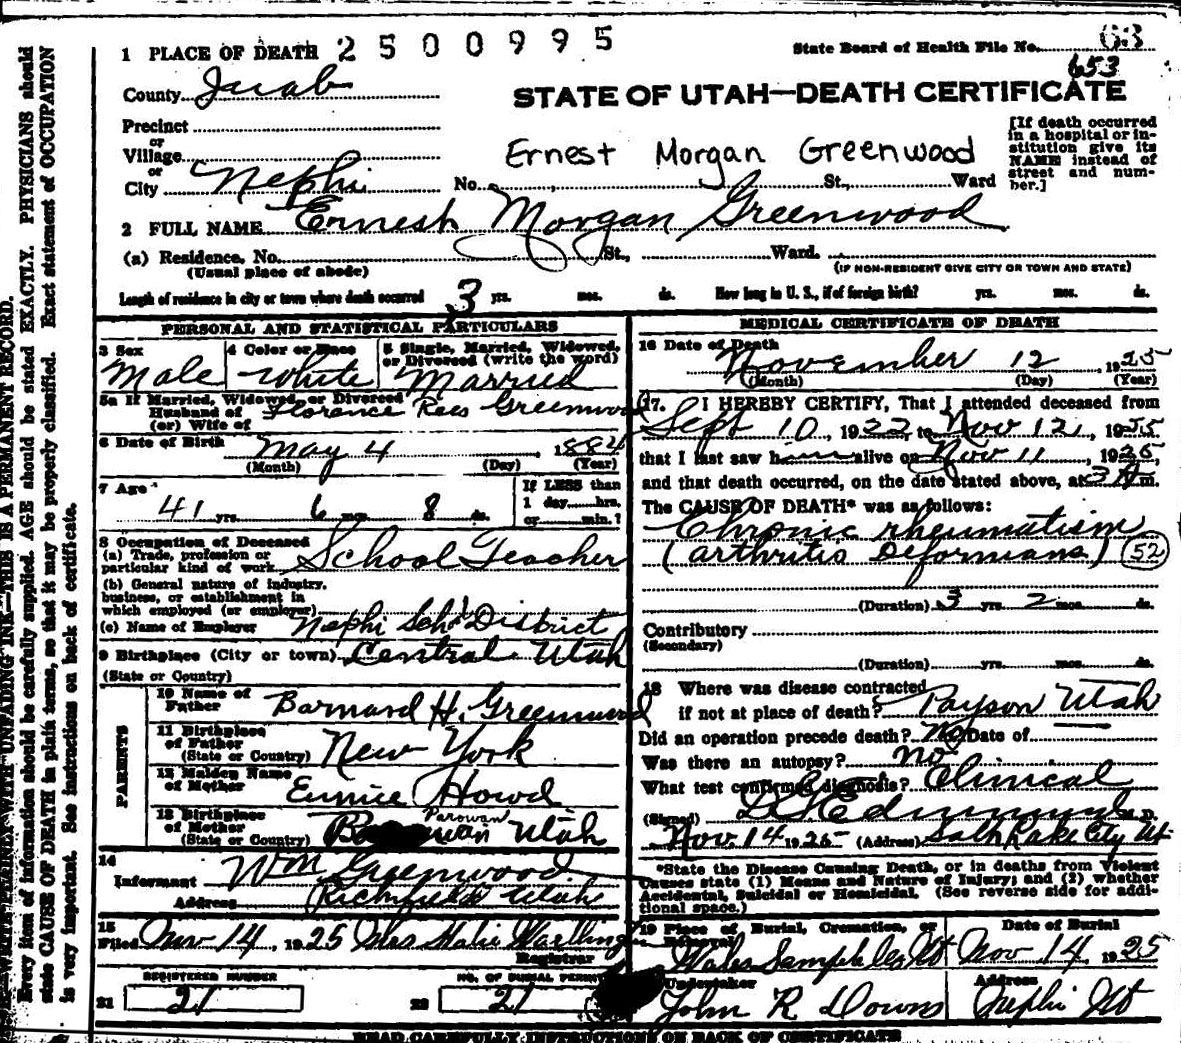 1 PLACE OF DEATH 2500995
State Board of Health File No. 63
653
County Juab
STATE OF UTAH—DEATH CERTIFICATE
Precinct
or
Village
or
City Nephi
Ernest Morgan Greenwood
No. St., Ward
[If death occurred
in a hospital or in-
stitution give its
NAME instead of
street and num-
ber.]
2 FULL NAME Ernest Morgan Greenwood
(a) Residence, No. St., Ward.
(Usual place of abode)
(IF NON-RESIDENT GIVE CITY OR TOWN AND STATE)
Length of residence in city or town where death occurred 3 yrs. mos. ds. How long in U. S., if of foreign birth? yrs. mos. ds.
PERSONAL AND STATISTICAL PARTICULARS
3 Sex
Male
4 Color or Race
White
5 Single, Married, Widowed,
or Divorced (write the word)
Married
5a If Married, Widowed, or Divorced
Husband of
(or) Wife of
Florence Rees Greenwood
6 Date of Birth
May 4, 1884
(Month) (Day) (Year)
7 Age
41 yrs. 6 mos. 8 ds.
If LESS than
1 day......hrs.
or......min.?
8 Occupation of Deceased
(a) Trade, profession or
particular kind of work School Teacher
(b) General nature of industry,
business, or establishment in
which employed (or employer)
(c) Name of Employer Nephi Sch. District
9 Birthplace (City or town) Central Utah
(State or Country)
PARENTS
10 Name of
Father Barnard H. Greenwood
11 Birthplace
of Father
(State or Country) New York
12 Maiden Name
of Mother Eunice Howd
13 Birthplace
of Mother
(State or Country)
Parowan
Utah
14
Informant Wm Greenwood
Address Richfield Utah
15
Filed Nov 14, 1925 Mrs
Registrar
REGISTERED NUMBER
21 21
NO. OF BURIAL PERMIT
22 21
MEDICAL CERTIFICATE OF DEATH
16 Date of Death
November 12, 1925
(Month) (Day) (Year)
17. I HEREBY CERTIFY, That I attended deceased from
Sept 10, 1922, to Nov 12, 1925
that I last saw him alive on Nov 11, 1925,
and that death occurred, on the date stated above, at 3 A m.
The CAUSE OF DEATH* was as follows:
Chronic rheumatism
(arthritis Deformans) 52
(Duration) 3 yrs. 2 mos. ds.
Contributory
(Secondary)
(Duration) yrs. mos. ds.
18 Where was disease contracted
if not at place of death? Payson Utah
Did an operation precede death? No Date of
Was there an autopsy? No
What test confirmed diagnosis? Clinical
(Signed) M. D.
Nov. 14 1925 (Address) Salt Lake City Ut
*State the Disease Causing Death, or in deaths from Violent
Causes state (1) Means and Nature of Injury; and (2) whether
Accidental, Suicidal or Homicidal. (See reverse side for addi-
tional space.)
19 Place of Burial, Cremation, or
Removal
Wales Ut
Date of Burial
Nov 14, 1925
Undertaker
John R Downs
Address
Nephi Ut
READ CAREFULLY INSTRUCTIONS ON BACK OF CERTIFICATE
WRITE PLAINLY WITH UNFADING INK—THIS IS A PERMANENT RECORD.
Every item of information should be carefully supplied. AGE should be stated EXACTLY. PHYSICIANS should
state CAUSE OF DEATH in plain terms, so that it may be properly classified. Exact statement of OCCUPATION
is very important. See instructions on back of certificate.